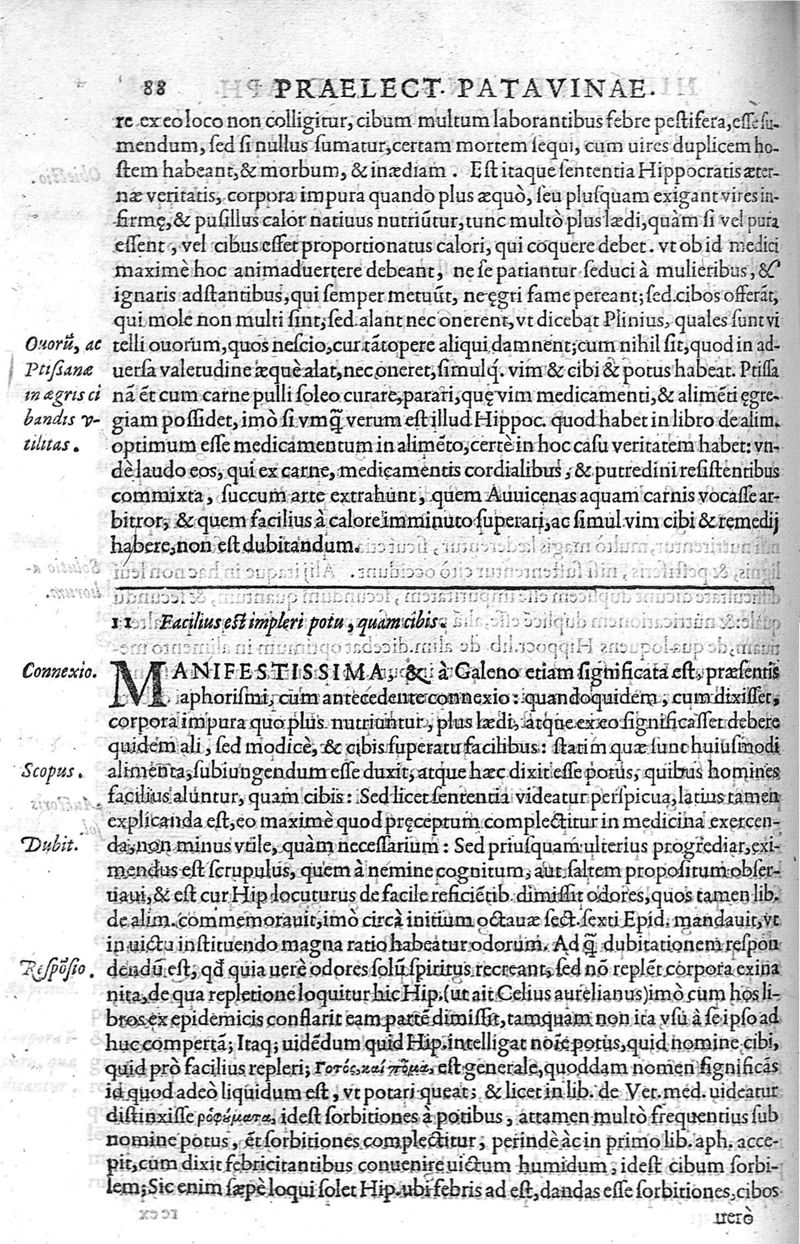 88 PRAELECT. PATAVINAE.
re ex eo loco non colligitur, cibum multum laborantibus febre pestifera, esse su-
mendum, sed si nullus sumatur, certam mortem sequi, cum uires duplicem ho-
stem habeant, & morbum, & inædiam. Est itaque sententia Hippocratis æter-
næ veritatis, corpora impura quando plus æquò, seu plusquam exigant vires in-
firmę, & pusillus calor natiuus nutriũtur, tunc multò plus lædi, quàm si vel pura
essent, vel cibus esset proportionatus calori, qui coquere debet. vt ob id medici
maximè hoc animaduertere debeant, ne se patiantur seduci à mulieribus, &
ignaris adstantibus, qui semper metuũt, ne ęgri fame pereant; sed cibos offerãt,
qui mole non multi sint, sed alant nec onerent, vt dicebat Plinius, quales sunt vi
Ouorũ, ac
telli ouorum, quos nescio, cur tãtopere aliqui damnent; cum nihil sit, quod in ad-
Ptisanæ
uersa valetudine æquè alat, nec oneret, simulq́. vim & cibi & potus habeat. Ptissa
in ægris ci
nã ẽt cum carne pulli soleo curare, parari, quę vim medicamenti, & alimẽti ęgre-
bandis v-
giam possidet, imò si vmq̃ verum est illud Hippoc. quod habet in libro de alim.
tilitas.
optimum esse medicamentum in alimẽto, certè in hoc casu veritatem habet: vn-
dè laudo eos, qui ex carne, medicamentis cordialibus, & putredini resistentibus
commixta, succum arte extrahunt, quem Auuicenas aquam carnis vocasse ar-
bitror, & quem facilius à calore imminuto superari, ac simul vim cibi & remedij
habere, non est dubitandum.
11 Facilius est impleri potu, quam cibis.
Connexio.
MANIFESTISSIMA, & à Galeno etiam significata est, præsentis
aphorismi, cum antecedente connexio: quandoquidem, cum dixisset,
corpora impura quo plus nutriuntur, plus lædi, atque ex eo significasset debere
quidem ali, sed modicè, & cibis superatu facilibus: statim quæ sunt huiusmodi
Scopus.
alimenta, subiungendum esse duxit, atque hæc dixit esse potus, quibus homines
facilius aluntur, quam cibis: Sed licet sententia videatur perspicua, latius tamen
explicanda est, eo maximè quod pręceptum complectitur in medicina exercen-
Dubit.
da, non minus vtile, quàm necessarium: Sed priusquam ulterius progrediar, exi-
mendus est scrupulus, quem à nemine cognitum, aut saltem propositum obser-
uaui, & est cur Hip locuturus de facile reficiẽtib. dimissit odores, quos tamen lib.
de alim. commemorauit, imò circà initium octauæ sect. sexti Epid. mandauit, vt
in uictu instituendo magna ratio habeatur odorum. Ad q̃ dubitationem respon
Respõsio.
dendũ est, qd̃ quia uerè odores solũ spiritus recreant, sed nõ replẽt corpora exina
nita, de qua repletione loquitur hic Hip. (ut ait Celius aurelianus) imò cum hos li-
bros ex epidemicis conflarit eam partẽ dimissit, tamquam non ita vsu à se ipso ad
huc compertã; Itaq; uidẽdum quid Hip. intelligat noĩe potus, quid nomine cibi,
quid prò facilius repleri; ποτός, καί πόμα, est generale, quoddam nomen significãs
id quod adeò liquidum est, vt potari queat; & licet in lib. de Vet. med. uideatur
distinxisse ροφήματα, idest sorbitiones à potibus, attamen multò frequentius sub
nomine potus, ẽt sorbitiones complectitur, perindè àc in primo lib. aph. acce-
pit, cum dixit febricitantibus conuenire uictum humidum, idest cibum sorbi-
lem; Sic enim sæpè loqui solet Hip. ubi febris ad est, dandas esse sorbitiones, cibos
uerò